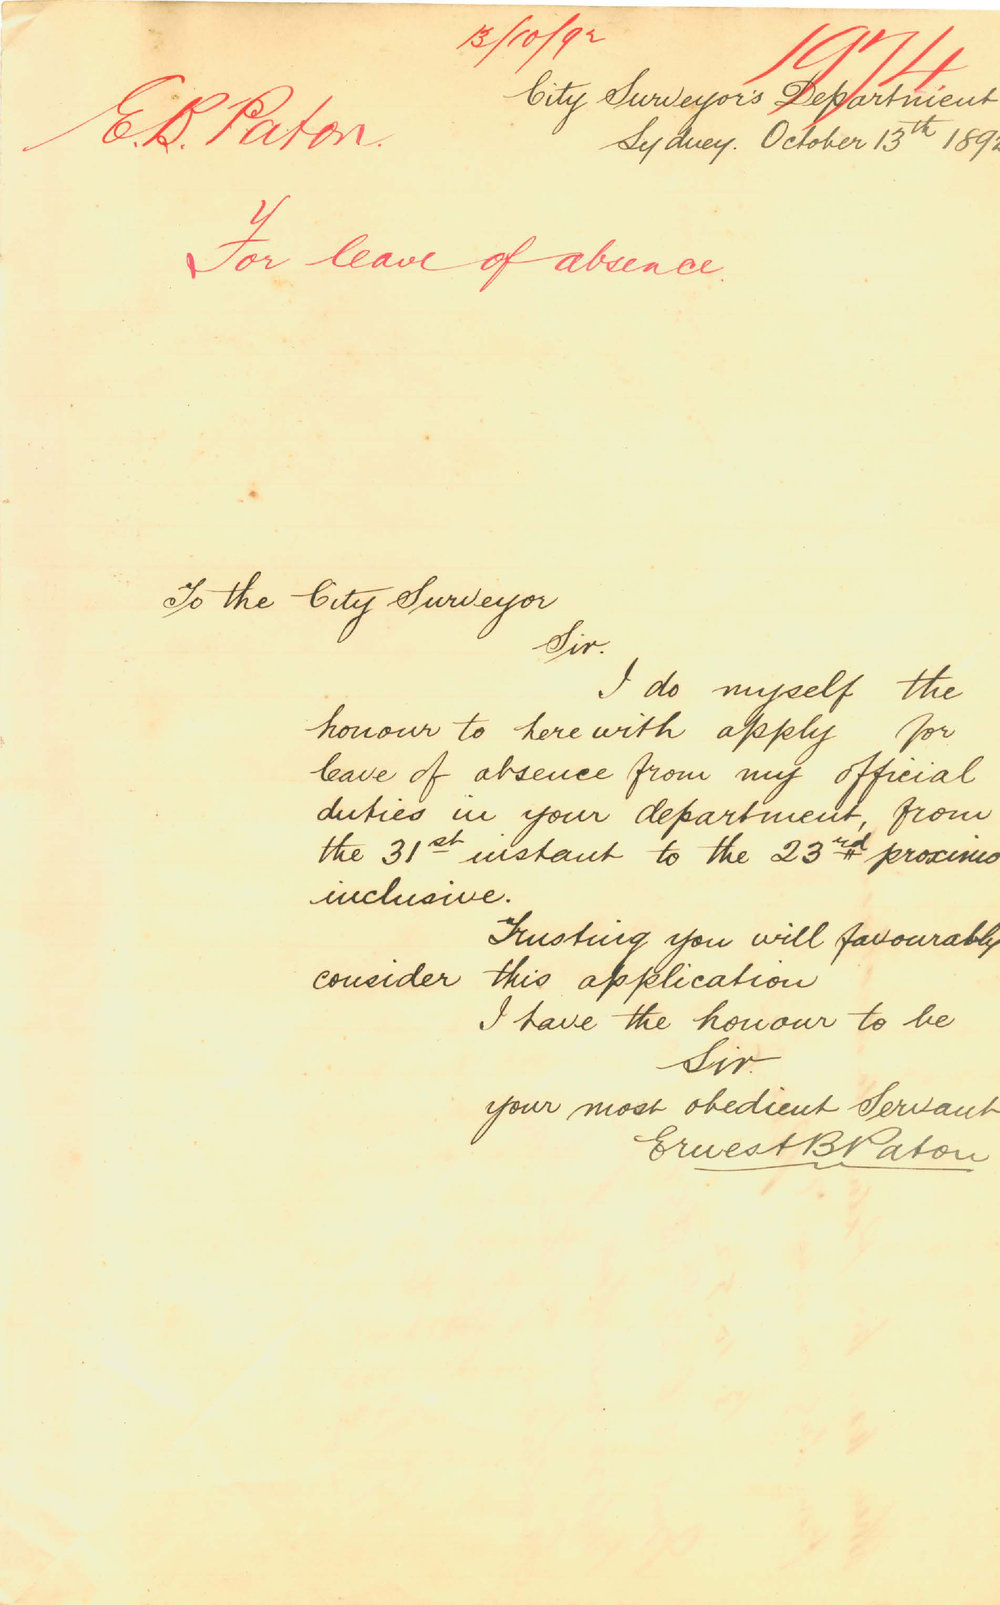 13/10/92
1974
City Surveyor's Department
E.B. Paton.
Sydney. October 13th 1892
For leave of absence.
To the City Surveyor
Sir.
I do myself the
honour to herewith apply for
leave of absence from my official
duties in your department, from
the 31st instant to the 23rd proximo
inclusive.
Trusting you will favourably
consider this application
I have the honour to be
Sir.
your most obedient Servant
Ernest B Paton